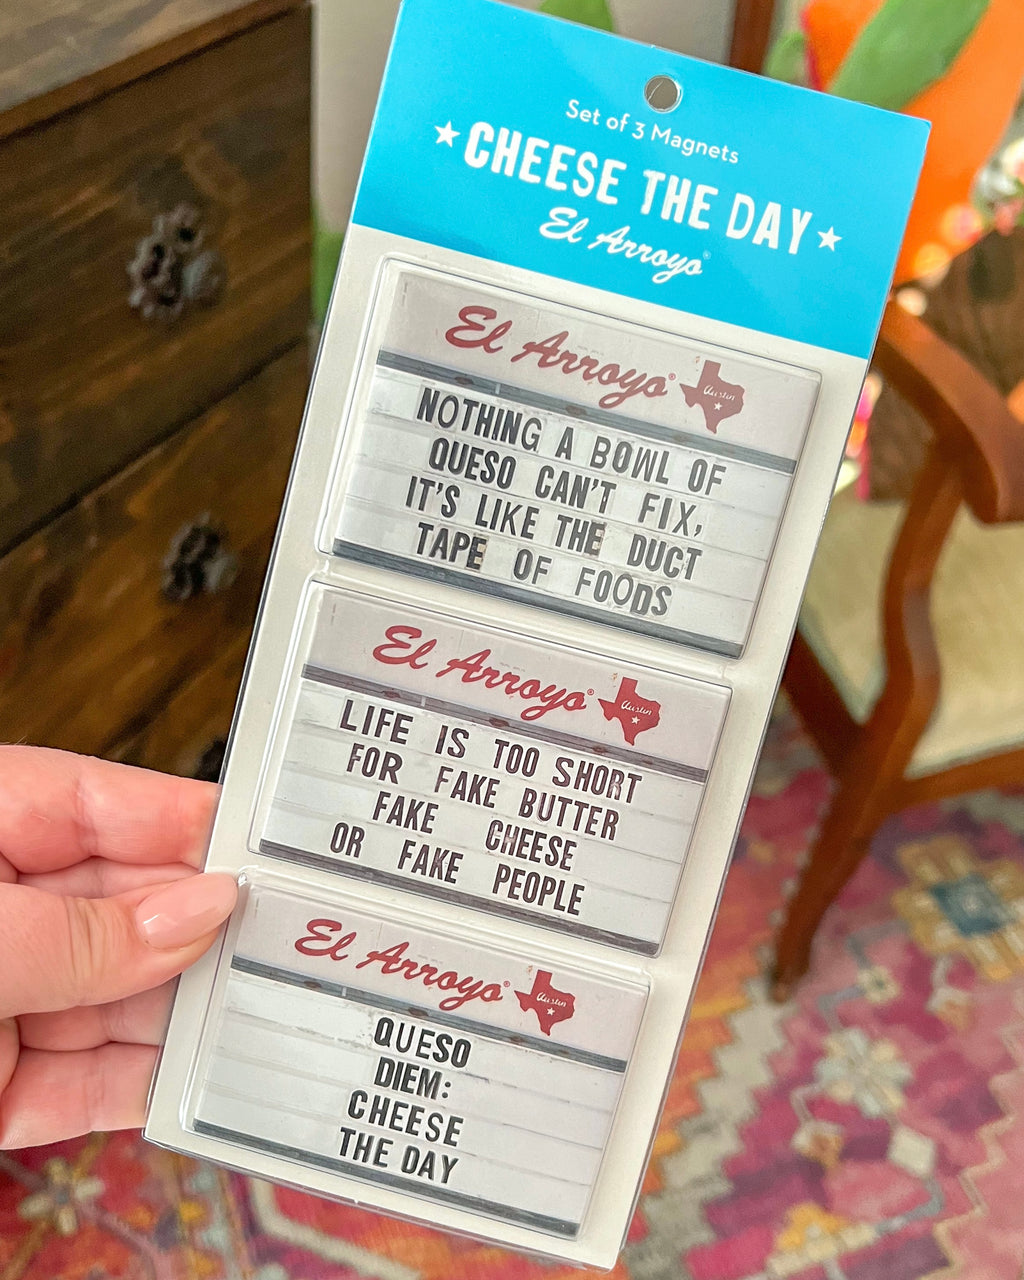 Set of 3 Magnets
★CHEESE THE DAY★
El Arroyo®
El Arroyo® Austin
NOTHING A BOWL OF
QUESO CAN'T FIX,
IT'S LIKE THE DUCT
TAPE OF FOODS
El Arroyo® Austin
LIFE IS TOO SHORT
FOR FAKE BUTTER
FAKE CHEESE
OR FAKE PEOPLE
El Arroyo® Austin
QUESO
DIEM:
CHEESE
THE DAY